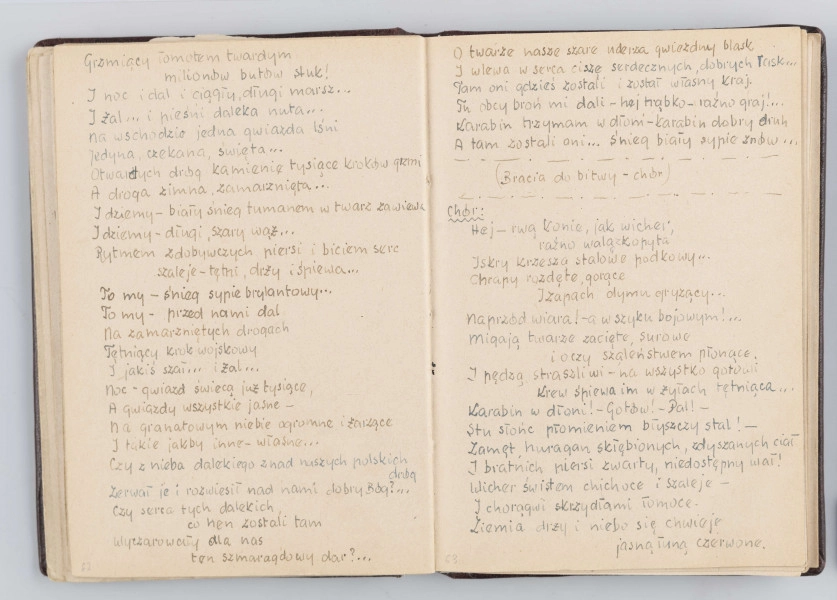 Grzmiący łomotem twardym
milionów butów stuk!
I noc i dal i ciągły, długi marsz...
I żal... i pieśni daleka nuta...
na wschodzie jedna gwiazda lśni
jedyna, czekana, święta...
Otwartych dróg kamienie tysiące kroków grzmi
A droga zimna, zamarznięta...
Idziemy - biały śnieg tumanem w twarz zawiewa
Idziemy - długi, szary wąż...
Rytmem zdobywczych piersi i biciem serc
szaleje - tętni, drży i śpiewa...
To my - śnieg sypie brylantowy...
To my - przed nami dal
na zamarzniętych drogach
Tętniący krok wojskowy
I jakiś szał... i żal...
Noc - gwiazd świecą już tysiące,
A gwiazdy wszystkie jasne -
na granatowym niebie ogromne i żarzące
I takie jakby inne - własne...
Czy z nieba dalekiego znad naszych polskich
dróg
Zerwał je i rozwiesił nad nami dobry Bóg?...
Czy serca tych dalekich,
co hen zostali tam
wyczarowały dla nas
ten szmaragdowy dar?...
O twarze nasze szare uderza gwiezdny blask
I wlewa w serca ciszę serdecznych, dobrych łask...
Tam oni gdzieś zostali i został własny kraj.
Tu obcy broń mi dali - hej trąbko - raźno graj!...
Karabin trzymam w dłoni - karabin dobry druh
A tam zostali oni... śnieg biały sypie znów...
(Bracia do bitwy - chór)
Chór:
Hej - rwą konie, jak wicher,
raźno walą z kopyta
Iskry krzesza stalowe podkowy...
Chrapy rozdęte, gorące
I zapach dymu gryzący...
naprzód wiara! - a w szyku bojowym!...
migają twarze zacięte, surowe
i oczy szaleństwem płonące.
I pędzą, straszliwi - na wszystko gotowi
Krew śpiewa im w żyłach tętniąca...
Karabin w dłoni! - Gotów! - Pal! -
Stu słońc płomieniem błyszczy stal! -
Zamęt, huragan skłębionych, zdyszanych ciał
I bratnich piersi zwarty, niedostępny wał!
Wicher świstem chichoce i szaleje -
I chorągwi skrzydłami łomoce.
Ziemia drży i niebo się chwieje
jasną łuną czerwone.
63